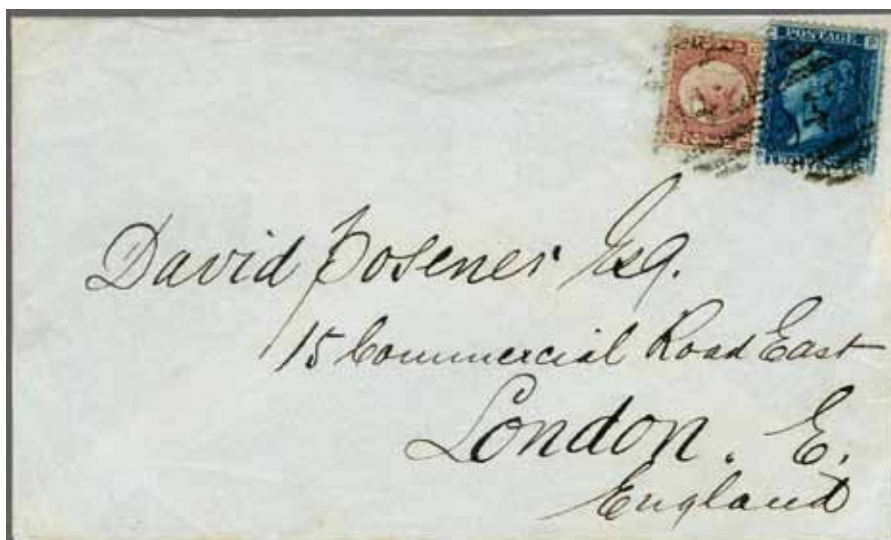 POSTAGE
David Posener Esq.
15 Commercial Road East
London. E.
England